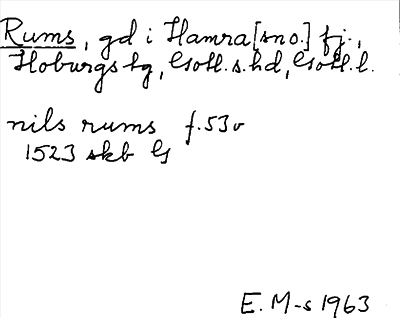 Rums, gd i Hamra [sno.] fj.,
Hoburgs tg, Gotl. s. hd, Gotl. l.
nils rums f. 53v
1523 skb G
E. M-s 1963